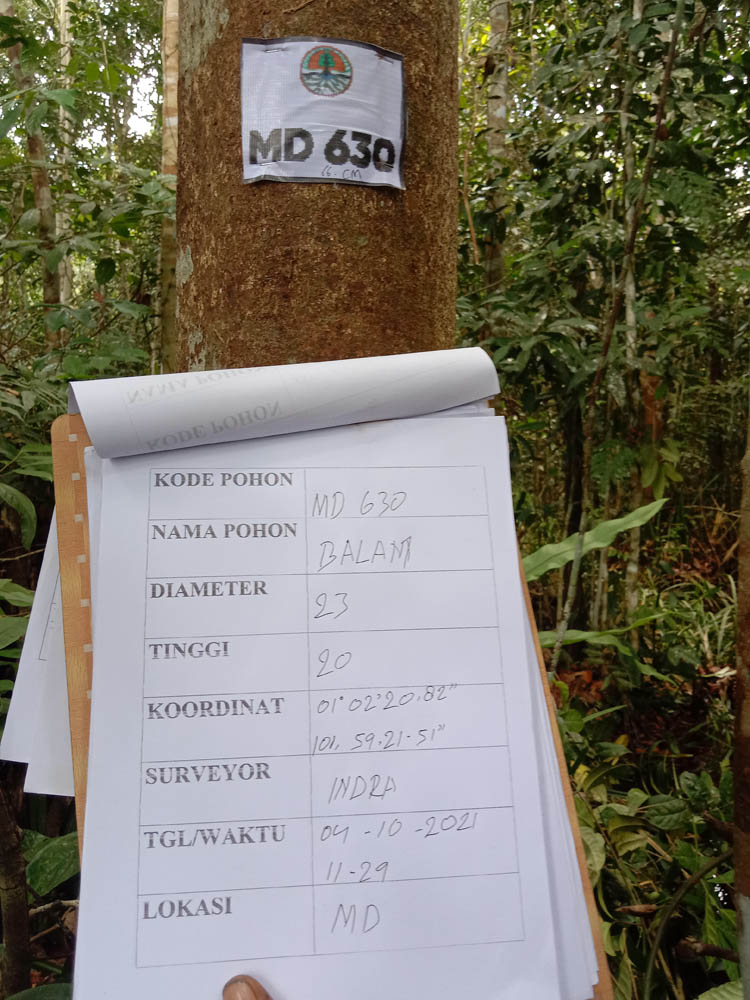 MD 630
CM
NAMA POHON
KODE POHON
KODE POHON MD 630
NAMA POHON BALAM
DIAMETER 23
TINGGI 20
KOORDINAT 01°02'20.82"
101. 59.21-51"
SURVEYOR INDRA
TGL/WAKTU 04-10-2021
11-29
LOKASI MD